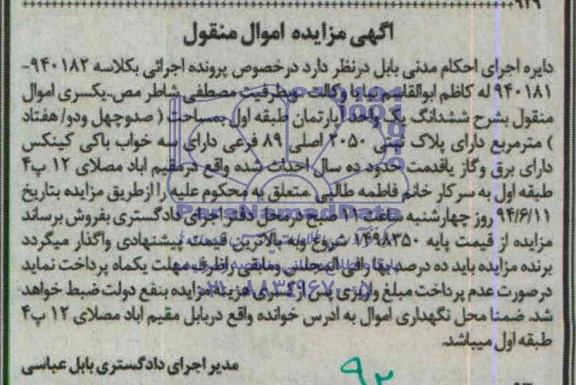 ۹۲۹
آگهی مزایده اموال منقول
دایره اجرای احکام مدنی بابل درنظر دارد درخصوص پرونده اجرائی بکلاسه ۹۴۰۱۸۲-
۹۴۰۱۸۱ له کاظم ابوالقاسم نیا با وکالت وبطرفیت مصطفی شاطر مص-یکسری اموال
منقول بشرح ششدانگ یک واحد اپارتمان طبقه اول بمساحت ( صدوچهل ودو/ هفتاد
) مترمربع دارای پلاک ثبتی ۲۰۵۰ اصلی ۸۹ فرعی دارای سه خواب باکی کینکس
دارای برق وگاز یاقدمت حدود ده سال احداث شده واقع درمقیم اباد مصلای ۱۲ پ۴
طبقه اول به سرکار خانم فاطمه طالبی متعلق به محکوم علیه را ازطریق مزایده بتاریخ
۹۴/۶/۱۱ روز چهارشنبه ساعت ۱۱ صبح درمحل دفتر اجرای دادگستری بفروش برساند
مزایده از قیمت پایه ۱۴۹۸۳۵۰ شروع وبه بالاترین قیمت پیشنهادی واگذار میگردد
برنده مزایده باید ده درصد بها رافی المجلس ومابقی راظرف مهلت یکماه پرداخت نماید
درصورت عدم پرداخت مبلغ واریزی پس ازکسری هزینه مزایده بنفع دولت ضبط خواهد
شد. ضمنا محل نگهداری اموال به ادرس خوانده واقع دربابل مقیم اباد مصلای ۱۲ پ۴
طبقه اول میباشد.
مدیر اجرای دادگستری بابل عباسی
۹۲
ParsNamadData
۰۲۱-۸۸۳۴۹۶۷۰-۵